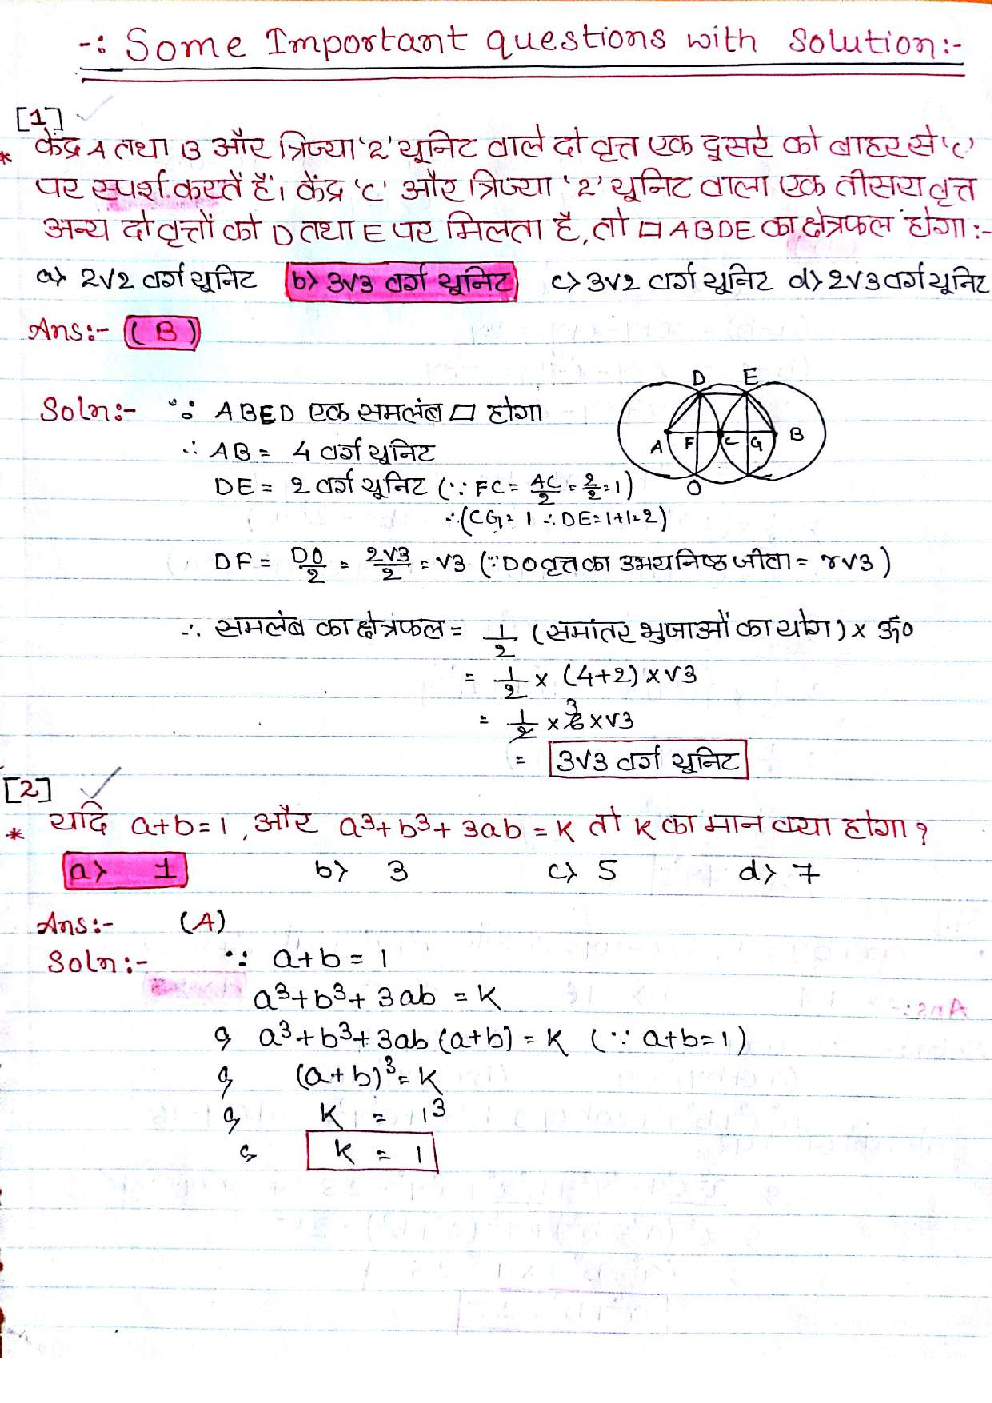 -: Some Important questions with Solution:-
[1]
* केंद्र A तथा B और त्रिज्या '2' यूनिट वाले दो वृत्त एक दुसरे को बाहर से 'c'
पर स्पर्श करतें हैं। केंद्र 'c' और त्रिज्या '2' यूनिट वाला एक तीसरा वृत्त
अन्य दो वृत्तों को D तथा E पर मिलता है, तो □ ABDE का क्षेत्रफल होगा:-
a> 2√2 वर्ग यूनिट b> 3√3 वर्ग यूनिट c> 3√2 वर्ग यूनिट d> 2√3 वर्ग यूनिट
Ans:- (B)
D E
Soln:- ∵ ABED एक समलंब ▱ होगा
A F C G B
∴ AB = 4 वर्ग यूनिट
DE = 2 वर्ग यूनिट (∵ FC = AC/2 = 2/2 = 1)
O
∴ (CG = 1 ∴ DE = 1+1=2)
DF = DO/2 = 2√3/2 = √3 (∵ DO वृत्त का उभयनिष्ठ जीवा = r√3)
∴ समलंब का क्षेत्रफल = 1/2 (समांतर भुजाओं का योग) × ऊँ०
= 1/2 × (4+2) × √3
= 1/2 × 6 3 × √3
= 3√3 वर्ग यूनिट
[2]
* यदि a+b=1, और a³+b³+3ab = K तो K का मान क्या होगा?
a> 1 b> 3 c> 5 d> 7
Ans:- (A)
Soln:- ∵ a+b = 1
a³+b³+3ab = K
a³+b³+3ab (a+b) = K (∵ a+b=1)
(a+b)³ = K
K = 1³
K = 1